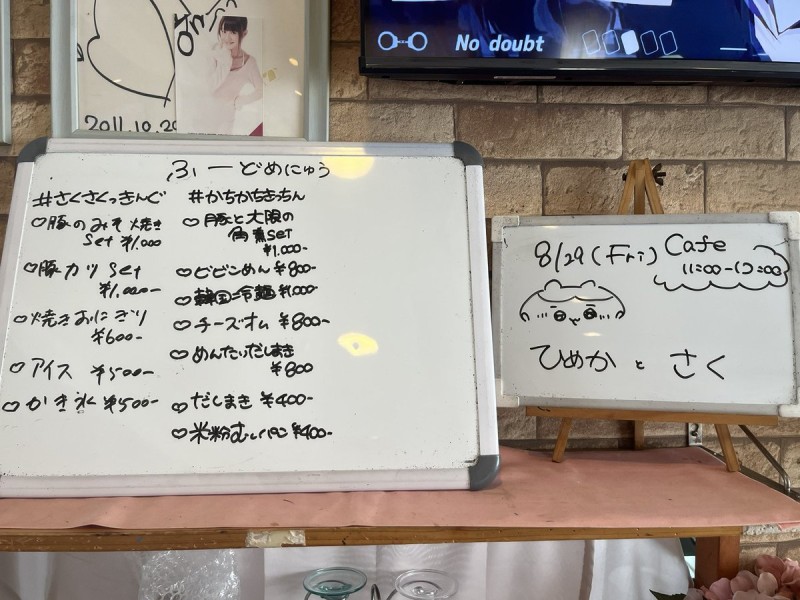 No doubt
2011.10.29
ふーどめにゅう
#さくさくっきんぐ
♡豚のみそ焼き
set ¥1,000
♡豚カツ set
¥1,000-
♡焼きおにぎり
¥600-
♡アイス ¥500-
♡かき氷 ¥500-
#かちかちきっちん
♡豚と大根の
角煮set
¥1,000-
♡ビビンめん ¥800-
♡韓国冷麺 ¥1,000-
♡チーズオム ¥800-
♡めんたいだしまき
¥800
♡だしまき ¥400-
♡米粉むしパン ¥400-
8/29 (Fri) Cafe
11:00-17:00
ひめか と さく